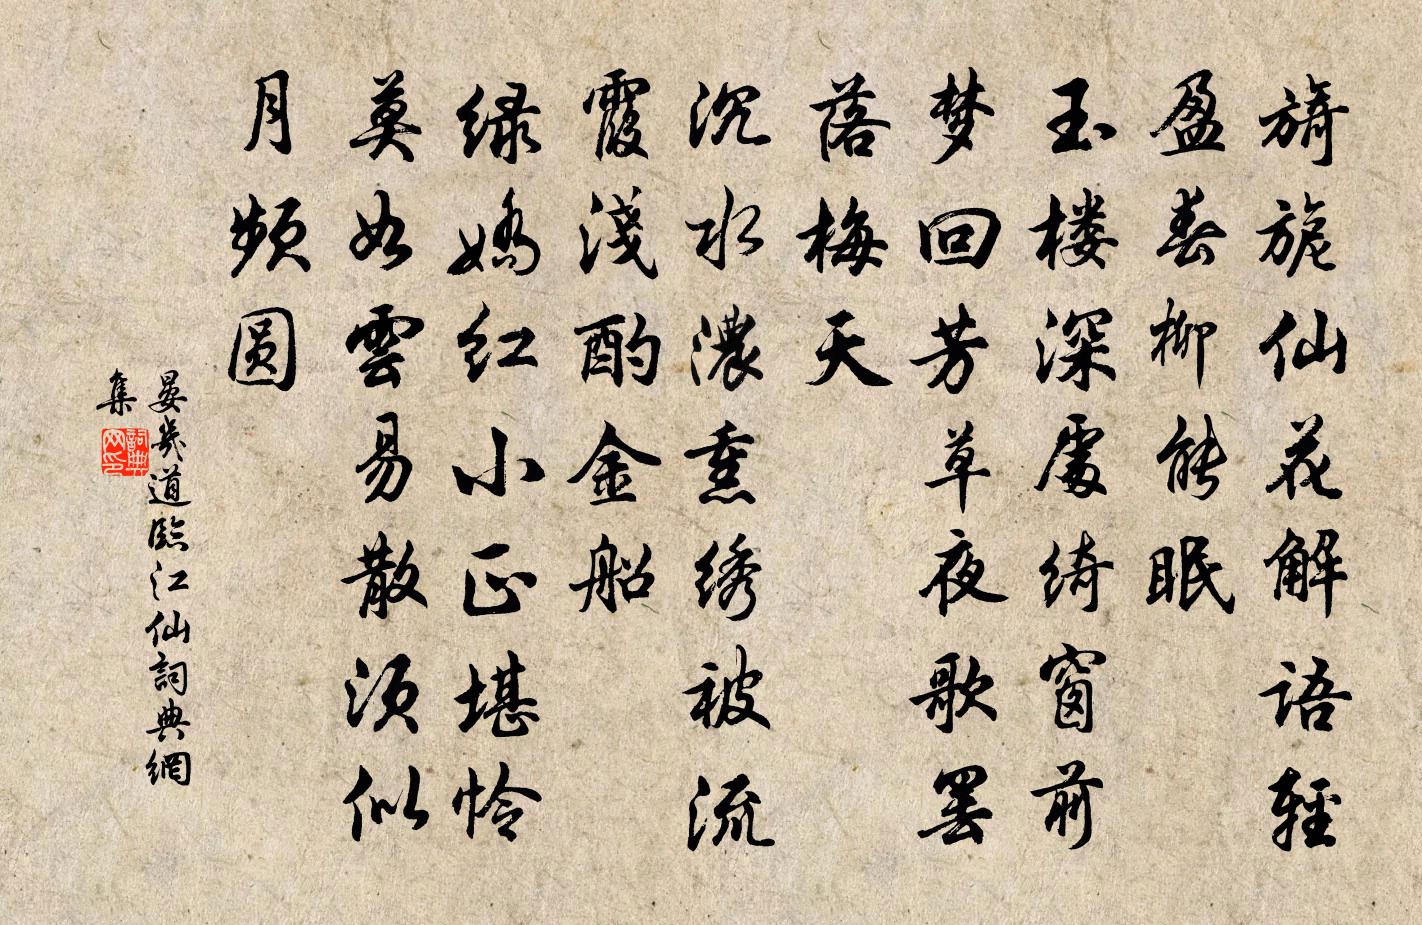 旖旎仙花解语輕
盈春柳能眠
玉楼深處绮窗前
梦回芳草夜歌罢
落梅天
沉水濃熏绣被流
霞淺酌金船
绿娇红小正堪怜
莫如雲易散须似
月频圆
晏幾道臨江仙詞典網
集
詞典
网印